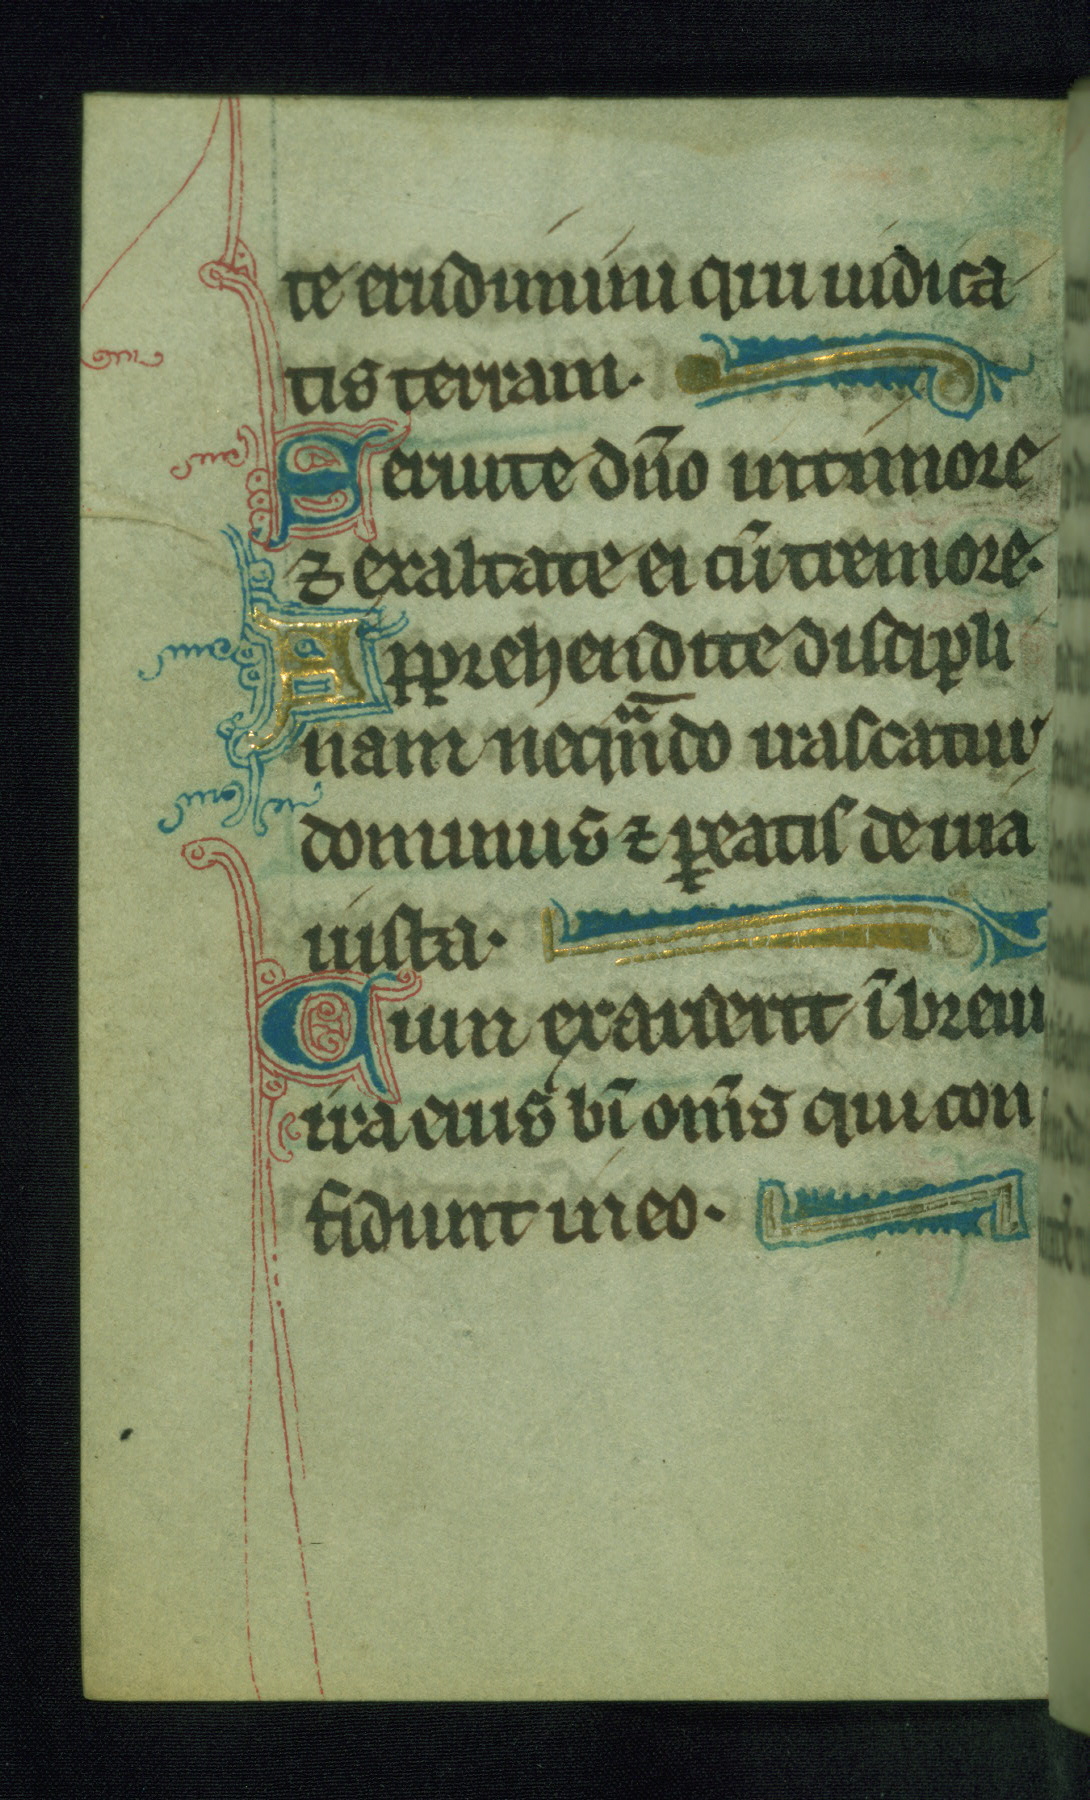 te erudimini qui iudica
tis terram.
Seruite dn̄o in timore
⁊ exaltate ei cū tremore.
Apprehendite discipli
nam neqn̄do irascatur
dominus ⁊ ꝑeatis de uia
iusta.
Cum exarserit ī breui
ira eius bī om̄s qui con
fidunt in eo.